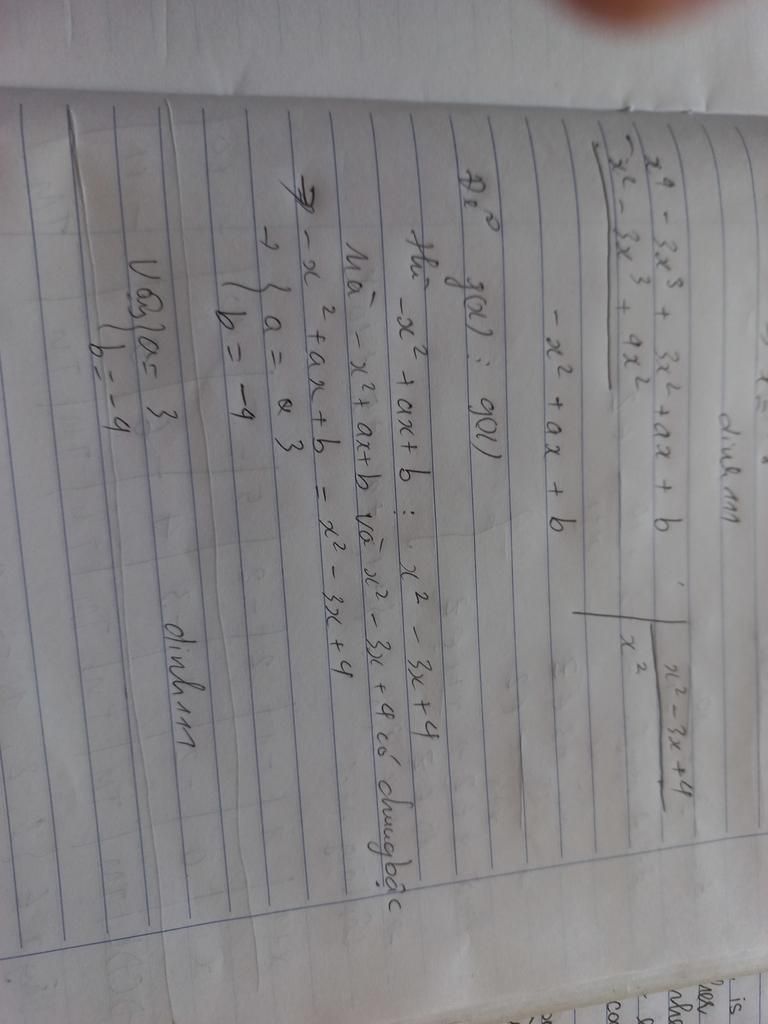 dinh111
x⁴ - 3x³ + 3x² + ax + b | x² - 3x + 4
- x² - 3x³ + 4x² | x²
- x² + ax + b
Để g(x) : g(x)
thì -x² + ax + b : x² - 3x + 4
Mà - x² + ax + b và x² - 3x + 4 có chung bậc
=> - x² + ax + b = x² - 3x + 4
→ { a = 3
{ b = -4
dinh111
Vậy { a = 3
{ b = -4